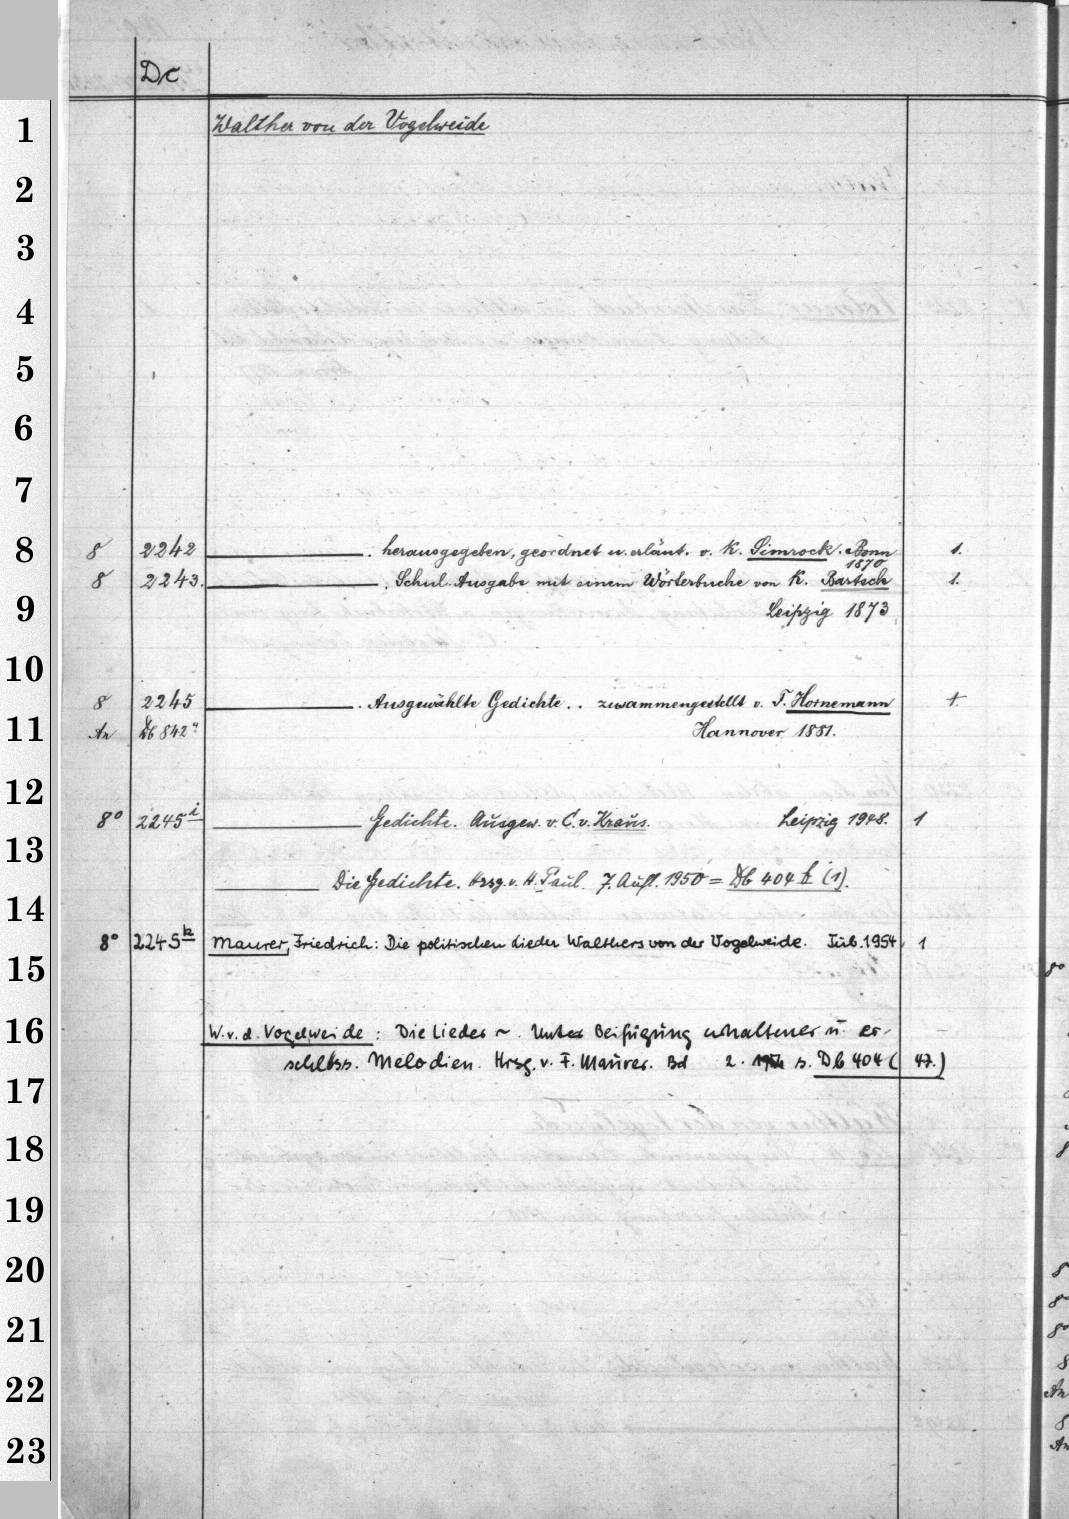 Dc
1 Walther von der Vogelweide
2
3
4
5
6
7
8 8 2242 . herausgegeben, geordnet u. erläut. v. K. Simrock. Bonn 1. 1870
8 2243. . Schul-Ausgabe mit einem Wörterbuche von K. Bartsch 1.
9 Leipzig 1873
10
8 2245 . Ausgewählte Gedichte . . zusammengestellt v. F. Hornemann +
11 An Db 842 Hannover 1881.
12
8° 2245 i Gedichte. Ausgew. v. C. v. Kraus. Leipzig 1948. 1
13
Die Gedichte. Hrsg. v. H. Paul. 7. Aufl. 1950 = Db 404 (1).
14
8° 2245 k Maurer, Friedrich: Die politischen Lieder Walthers von der Vogelweide. Tüb. 1954 1
15
16 W. v. d. Vogelweide: Die Lieder ~. Unter Beifügung erhaltener u. er-
schloss. Melodien. Hrsg. v. F. Maurer. Bd 2. s. Db 404 (47.)
17
18
19
20
21
22
23